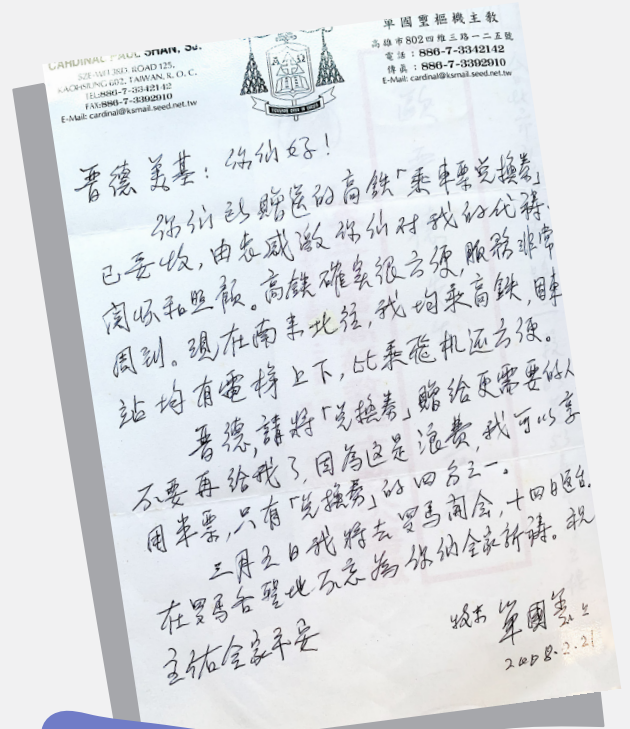 CARDINAL PAUL SHAN, SJ.
SZE-WEI 3RD. ROAD 125,
KAOHSIUNG 802, TAIWAN, R. O. C.
TEL:886-7-3342142
FAX:886-7-3392910
E-Mail: cardinal@ksmail.seed.net.tw
單國璽樞機主教
高雄市802四維三路一二五號
電話：886-7-3342142
傳真：886-7-3392910
E-Mail: cardinal@ksmail.seed.net.tw
晋德 美基：你们好！
你们所贈送的高鉄「乘車票兑換券」
已妥收，由衷感激你们对我的代禱、
関怀和照顧。高鉄確实很方便，服務非常
周到。現在南来北往，我均乘高鉄，因車
站均有電梯上下，比乘飛机还方便。
晋德，請將「兑換券」贈给更需要的人
不要再给我了，因為这是浪費，我可以享
用半票，只有「兑換券」的四分之一。
三月五日我將去罗馬開会，十四日返台。
在罗馬各聖地不忘為你们全家祈禱。祝
主佑全家平安
牧末 單國璽上
2008.2.21